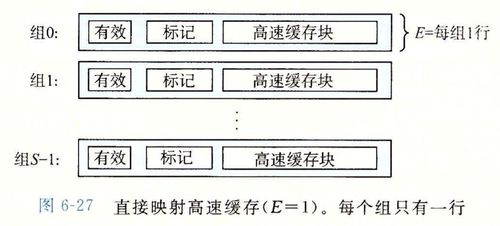 组0: 有效 标记 高速缓存块 E=每组1行
组1: 有效 标记 高速缓存块
⋮
组S-1: 有效 标记 高速缓存块
图 6-27 直接映射高速缓存(E=1)。每个组只有一行